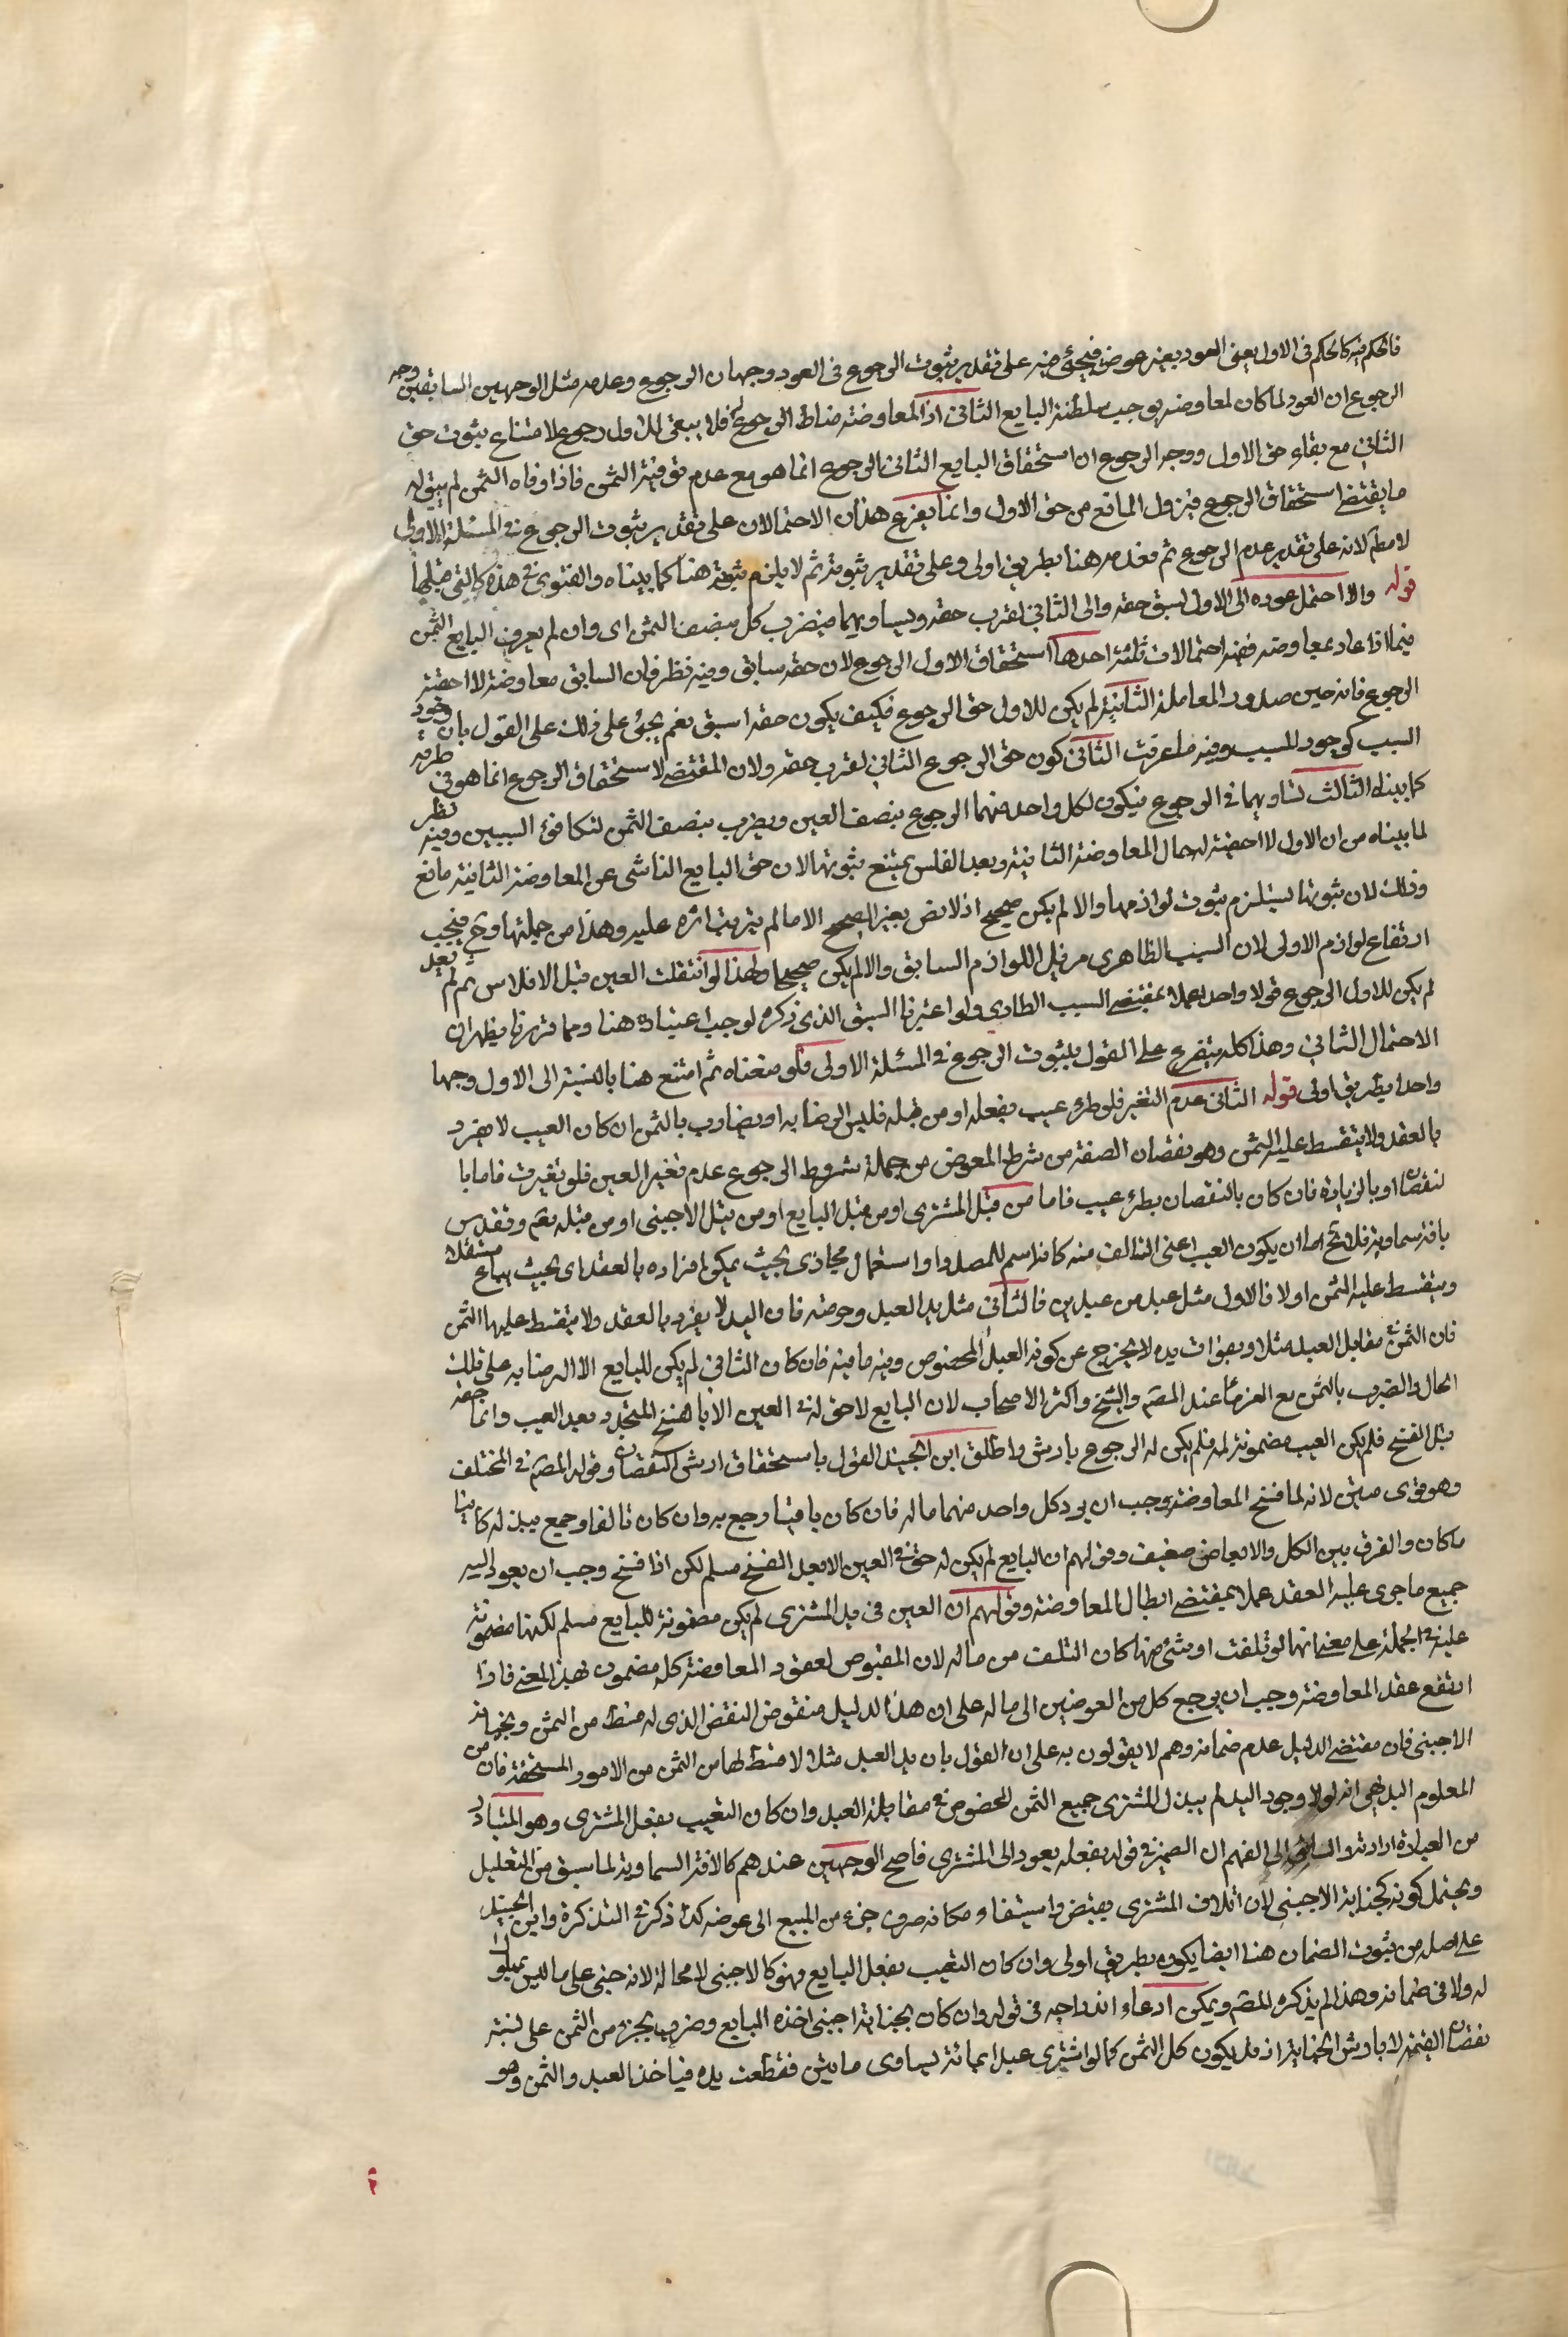 فالحكم فيه كالحكم في الاول يعني العود بغير عوض فيجئ فيه على تقدير ثبوت الرجوع في العود وجهان الرجوع وعدمه مثل الوجهين السابقين وجه
الرجوع ان العود لما كان لمعاوضة يوجب سلطنة البايع الثاني اذ المعاوضة مناط الرجوع فلا يبقى للاول رجوع لامتناع ثبوت حق
الثاني مع بقاء حق الاول ووجه الرجوع ان استحقاق البايع الثاني الرجوع انما هو مع عدم توفية الثمن فاذا وفاه الثمن لم يبق له
ما يقتضي استحقاق الرجوع فيزول المانع من حق الاول وانما يفرع هذان الاحتمالان على تقدير ثبوت الرجوع في المسئلة الاولى
لا مطم لانه على تقدير عدم الرجوع ثم فعدمه هنا بطريق اولى وعلى تقدير ثبوته ثم لا يلزم ثبوته هنا كما بيناه والفتوى في هذه كالتي قبلها
قوله والا احتمل عوده الى الاول لسبق حقه والى الثاني لقرب حقه وتساويهما فيضرب كل بنصف الثمن اى وان لم يعرف البايع الثمن
فيما اذا عاد بمعاوضة ففيه احتمالات ثلثة احدها استحقاق الاول الرجوع لان حقه سابق وفيه نظر فان السابق معاوضته لا احقيته
الرجوع فانه حين صدور المعاملة الثانية لم يكن للاول حق الرجوع فكيف يكون حقه اسبق نعم يجئ على ذلك على القول بان وجود
السبب كوجود المسبب وفيه ما عرفت الثاني كون حق الرجوع الثاني لقرب حقه ولان المقتضي لاستحقاق الرجوع انما هو في طرفه
كما بيناه الثالث تساويهما في الرجوع فيكون لكل واحد منهما الرجوع بنصف العين ويضرب بنصف الثمن لتكافؤ السببين وفيه نظر
لما بيناه من ان الاول لا احقية له حال المعاوضة الثانية وبعد الفلس يمتنع ثبوتها لان حق البايع الناشي عن المعاوضة الثانية مانع
وذلك لان ثبوتها يستلزم ثبوت لوازمها والا لم يكن صحيح اذ لا نعني بغير الصحيح الا ما لم يترتب اثره عليه وهذا من جملتها وح فيجب
ارتفاع لوازم الاولى لان السبب الظاهرى مزيل اللوازم السابق والا لم يكن صحيحا ولهذا لو انتقلت العين قبل الافلاس ثم لم تعد
لم يكن للاول الرجوع قولا واحدا عملا بمقتضى السبب الطارى ولو اعتبرنا السبق الذي ذكره لوجب اعتباره هنا ومما قررنا يظهر ان
الاحتمال الثاني وهذا كله يتفرع على القول بثبوت الرجوع في المسئلة الاولى فلو منعناه ثم امتنع هنا بالنسبة الى الاول وجها
واحدا بطريق اولى قوله الثاني عدم التغير فلو طرء عيب بفعله او من قبله فليس الرضا به او يضارب بالثمن ان كان العيب لا يفرد
بالعقد ولا يتقسط عليه الثمن وهو نقصان الصفة من شرط المعوض من جملة شروط الرجوع عدم تغير العين فلو تغيرت فاما با
لنقصان او بالزيادة فان كان بالنقصان بطرء عيب فاما من قبل المشترى او من قبل البايع او من قبل الاجنبى او من قبله تعم وتقدس
بافة سماوية فلا يخ اما ان يكون العيب اعنى التالف منه كانه اسم للمصدر او استعمال مجازى بحيث يمكن افراده بالعقد اى بحيث يباع مستقلا
ويتقسط عليه الثمن اولا فالاول مثل عبد من عبدين فالثاني مثل يد العبد وحوضه فان اليد لا يفرد بالعقد ولا يتقسط عليها الثمن
فان الثمن في مقابل العبد مثلا وبفوات يده لا يخرج عن كونه العبد المخصوص وفيه ما فيه فان كان الثاني لم يكن للبايع الا الرضا به على تلك
الحال والضرب بالثمن مع الغرماء عند المصم والشيخ واكثر الاصحاب لان البايع لاحق له في العين الا بالفسخ المتجدد بعد العيب وانما حقه
قبل الفسخ فلم يكن العيب مضمونا له فلم يكن له الرجوع بارش واطلق ابن الجنيد القول باستحقاق ارش النقصان وقواه المصم في المختلف
وهو قوى متين لانه لما فسخ المعاوضة وجب ان يرد كل واحد منهما ماله فان كان باقيا رجع به وان كان تالفا رجع ببدله كائنا
ما كان والفرق بين الكل والابعاض ضعيف وقولهم ان البايع لم يكن له حق في العين الا بعد الفسخ مسلم لكن اذا فسخ وجب ان يعود اليه
جميع ما جرى عليه العقد عملا بمقتضى ابطال المعاوضة وقولهم ان العين في يد المشترى لم يكن مضمونة للبايع مسلم لكنها مضمونة
عليه في الجملة على معنى انها لو تلفت او شئ منها كان التلف من ماله لان المقبوض لعقود المعاوضة كله مضمون بهذا المعنى فاذا
ارتفع عقد المعاوضة وجب ان يرجع كل من العوضين الى ماله على ان هذا الدليل منقوض النقض الذى له قسط من الثمن وبجناية
الاجنبى فان مقتضى الدليل عدم ضمانه وهم لا يقولون به على ان القول بان يد العبد مثلا لا قسط لها من الثمن من الامور المستحقة فان من
المعلوم البديهى انه لولا وجود اليد لم يبذل المشترى جميع الثمن المخصوص في مقابلة العبد وان كان التعيب بفعل المشترى وهو المتبادر
من العبارة ارادته والسابق الى الفهم ان الضمير في قوله بفعله يعود الى المشترى فاصح الوجهين عندهم كالافة السماوية لما سبق من التعليل
ويحتمل كونه كجناية الاجنبى لان اتلاف المشترى يقبض واستيفاء وكانه صرف جزء من المبيع الى عوضه كذا ذكر في التذكرة وابن الجنيد
على اصله من ثبوت الضمان هنا ايضا يكون بطريق اولى وان كان التعيب بفعل البايع فهو كالاجنبى لا محالة لانه جنى على ما ليس بمملوك
له ولا في ضمانه وهذا لم يذكره المصم ويمكن ادعاء اندراجه في قوله وان كان بجناية اجنبى اخذه البايع وضرب بجزء من الثمن على نسبة
نقصان القيمة لا بارش الجناية اذ قد يكون كل الثمن كما لو اشترى عبدا بمائة يساوى مايتين فقطعت يده فياخذ العبد والثمن وهو